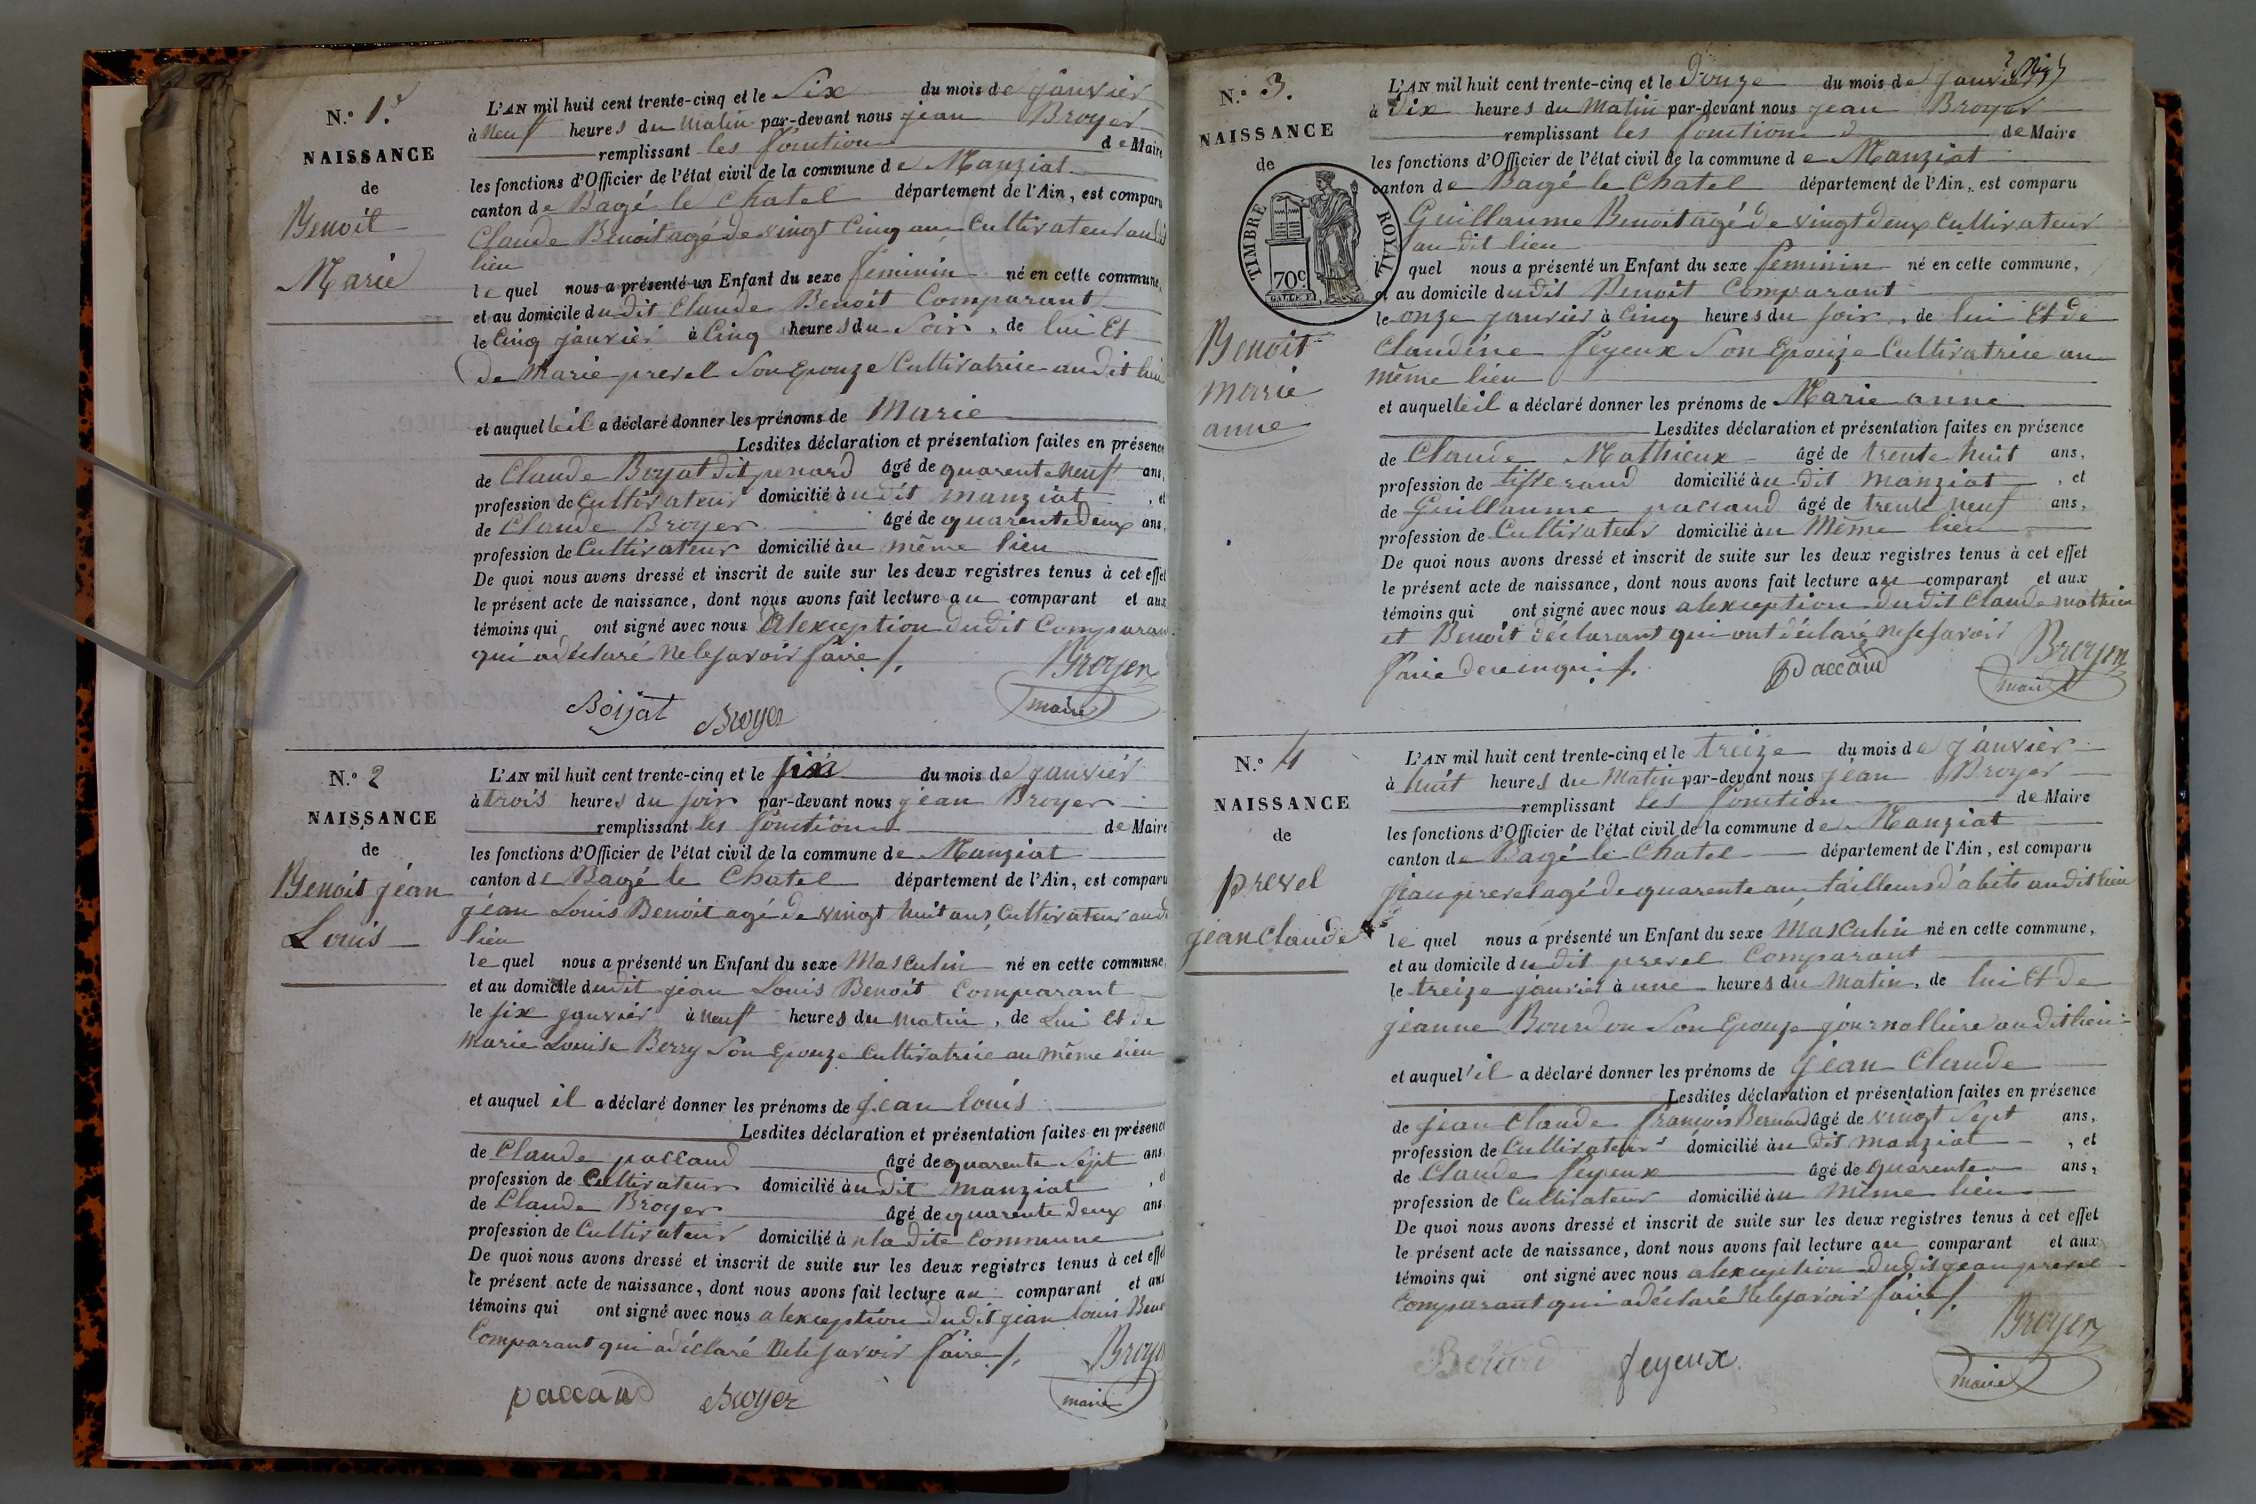 N.° 1.r
NAISSANCE
de
Benoit
Marie
L'AN mil huit cent trente-cinq et le Six du mois de janvier
à Neuf heures du Matin par-devant nous jean Broyer
remplissant les fonction de Maire
les fonctions d'Officier de l'état civil de la commune de Manziat
canton de Bagé le Chatel département de l'Ain, est comparu
Claude Benoit agé de vingt Cinq ans Cultivateur au dit
lieu
le quel nous a présenté un Enfant du sexe féminin né en cette commune,
et au domicile dudit Claude Benoit Comparant
le Cinq janvier à Cinq heures du Soir, de lui Et
de Marie prevel Son Epouze Cultivatrice au dit lieu
et auquel le il a déclaré donner les prénoms de Marie
Lesdites déclaration et présentation faites en présence
de Claude Boyat dit penard âgé de quarente Neuf ans,
profession de Cultivateur domicilié àu dit manziat, et
de Claude Broyer âgé de quarente Deux ans,
profession de Cultivateur domicilié àu même lieu
De quoi nous avons dressé et inscrit de suite sur les deux registres tenus à cet effet
le présent acte de naissance, dont nous avons fait lecture au comparant et aux
témoins qui ont signé avec nous alexception dudit Comparant
qui adéclaré Ne le Savoir faire /.
Broyer
maire
Boijat Broyer
N.° 2
NAISSANCE
de
Benoit jéan
Louis
L'AN mil huit cent trente-cinq et le six du mois de janvier
à trois heures du soir par-devant nous jean Broyer
remplissant les fonction de Maire
les fonctions d'Officier de l'état civil de la commune de Manziat
canton de Bagé le Chatel département de l'Ain, est comparu
jéan Louis Benoit agé de vingt huit ans Cultivateur au d
lieu
le quel nous a présenté un Enfant du sexe Masculin né en cette commune
et au domicile dudit jéan Louis Benoit Comparant
le six janvier à Neuf heures du Matin, de Lui et de
Marie Louise Berry Son Epouze Cultivatrice au même lieu
et auquel il a déclaré donner les prénoms de jean louis
Lesdites déclaration et présentation faites en présence
de Claude paccaud âgé de quarente Sept ans
profession de Cultivateur domicilié àu dit manziat, et
de Claude Broyer âgé de quarente Deux ans
profession de Cultivateur domicilié à la dite Commune
De quoi nous avons dressé et inscrit de suite sur les deux registres tenus à cet effet
le présent acte de naissance, dont nous avons fait lecture au comparant et aux
témoins qui ont signé avec nous alexception dudit jéan louis Beno
Comparant qui adéclaré Ne le Savoir faire /.
Broyer
maire
paccaud Broyer
N.° 3.
NAISSANCE
de
TIMBRE ROYAL
70c
Benoit
marie
anne
L'AN mil huit cent trente-cinq et le Douze du mois de janvier
à Dix heures du Matin par-devant nous jean Broyer
remplissant les fonction de Maire
les fonctions d'Officier de l'état civil de la commune de Manziat
canton de Bagé le Chatel département de l'Ain, est comparu
Guillaume Benoit agé de vingt deux Cultivateur
au dit lieu
le quel nous a présenté un Enfant du sexe feminin né en cette commune,
et au domicile dudit Benoit Comparant
le onze janvier à Cinq heures du soir, de lui Et de
Claudine feyeux Son Epouze Cultivatrice au
même lieu
et auquel le il a déclaré donner les prénoms de Marie anne
Lesdites déclaration et présentation faites en présence
de Claude Mathieux âgé de trente huit ans,
profession de tisserand domicilié àu dit manziat, et
de Guillaume paccaud âgé de trente neuf ans,
profession de Cultivateur domicilié àu Même lieu
De quoi nous avons dressé et inscrit de suite sur les deux registres tenus à cet effet
le présent acte de naissance, dont nous avons fait lecture au comparant et aux
témoins qui ont signé avec nous alexception dudit Claude mathieu
et Benoit déclarant qui ont déclaré ne le savoir
faire de ce enquis /.
Paccaud
Broyer
maire
N.° 4
NAISSANCE
de
prevel
jean Claude
L'AN mil huit cent trente-cinq et le treize du mois de janvier
à huit heures du Matin par-devant nous jéan Broyer
remplissant les fonction de Maire
les fonctions d'Officier de l'état civil de la commune de Manziat
canton de Bagé le Chatel département de l'Ain, est comparu
jean prevel agé de quarente ans, tailleurs d'abits au dit lieu
le quel nous a présenté un Enfant du sexe Masculin né en cette commune,
et au domicile dudit prevel Comparant
le treize janvier à une heures du Matin, de lui Et de
jéanne Bourdon Son Epouze journallière au dit lieu
et auquel il a déclaré donner les prénoms de jean Claude
Lesdites déclaration et présentation faites en présence
de jean Claude françois Bernard âgé de vingt Sept ans,
profession de Cultivateur domicilié àu dit manziat, et
de Claude feyeux âgé de quarente ans,
profession de Cultivateur domicilié àu Même lieu
De quoi nous avons dressé et inscrit de suite sur les deux registres tenus à cet effet
le présent acte de naissance, dont nous avons fait lecture au comparant et aux
témoins qui ont signé avec nous alexception dudit jean prevel
Comparant qui adéclaré Ne le Savoir faire /.
Broyer
maire
feyeux